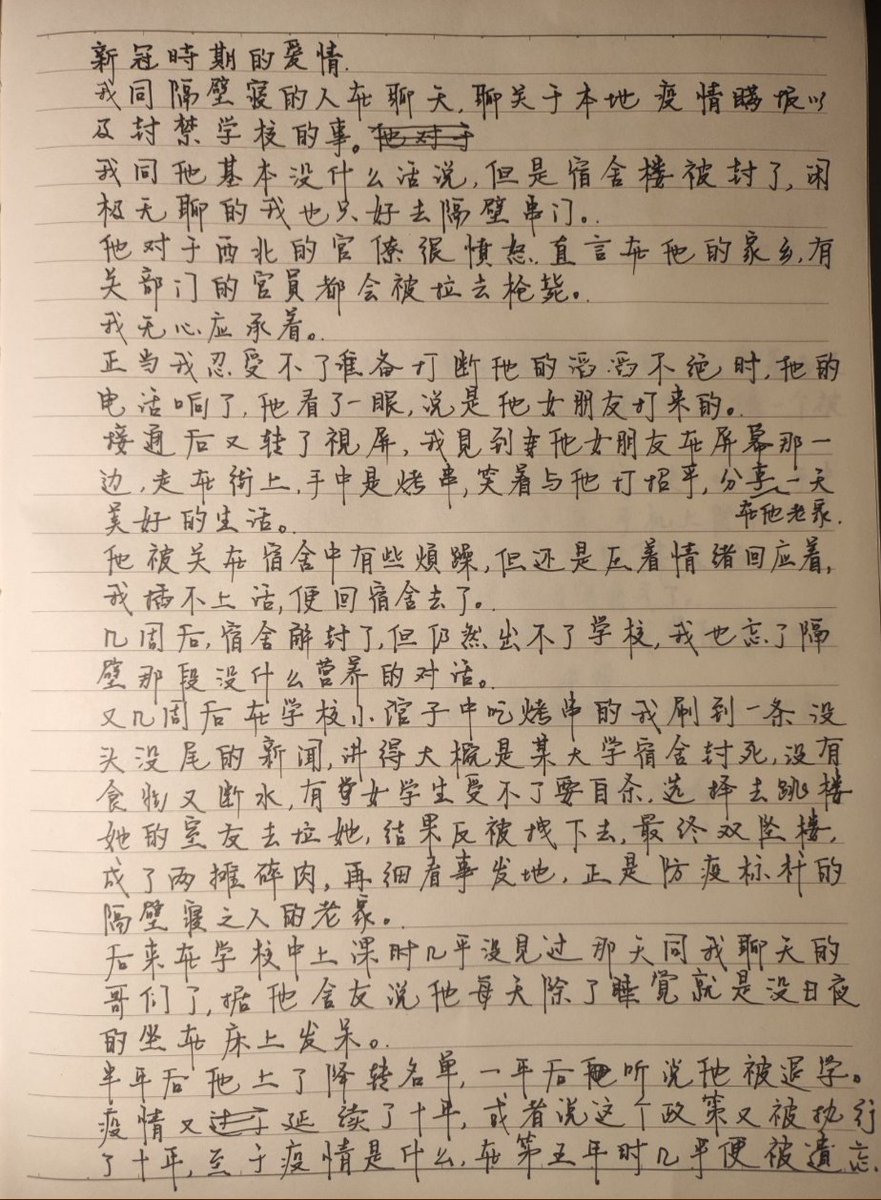 新冠時期的爱情.
我同隔壁寝的人在聊天,聊关于本地疫情瞒报以
及封禁学校的事。他对于
我同他基本没什么话说,但是宿舍楼被封了,闲
极无聊的我也只好去隔壁串门。
他对于西北的官僚很愤怒.直言在他的家乡,有
关部门的官員都会被拉去枪毙。
我无心应承着。
正当我忍受不了准备打断他的滔滔不绝时,他的
电话响了,他看了一眼,说是他女朋友打来的。
接通后又转了視屏,我見到他女朋友在屏幕那一
边,走在街上,手中是烤串,笑着与他打招乎,分享一天
在他老家.
美好的生活。
他被关在宿舍中有些煩躁,但还是压着情绪回应着,
我插不上话,便回宿舍去了。
几周后,宿舍解封了,但仍然出不了学校,我也忘了隔
壁那段没什么营养的对话。
又几周后在学校小馆子中吃烤串的我刷到一条没
头没尾的新闻,讲得大概是某大学宿舍封死,没有
食物又断水,有女学生受不了要自杀,选择去跳楼
她的室友去拉她,结果反被拽下去,最终双坠楼,
成了两摊碎肉,再细看事发地,正是防疫标杆的
隔壁寝之人的老家。
后来在学校中上课时几乎没見过那天同我聊天的
哥们了,据他舍友说他每天除了睡觉就是没日夜
的坐在床上发呆。
半年后他上了降转名单,一年后听说他被退学。
疫情又过于延续了十年,或者说这个政策又被执行
了十年,至于疫情是什么,在第五年时几乎便被遺忘.